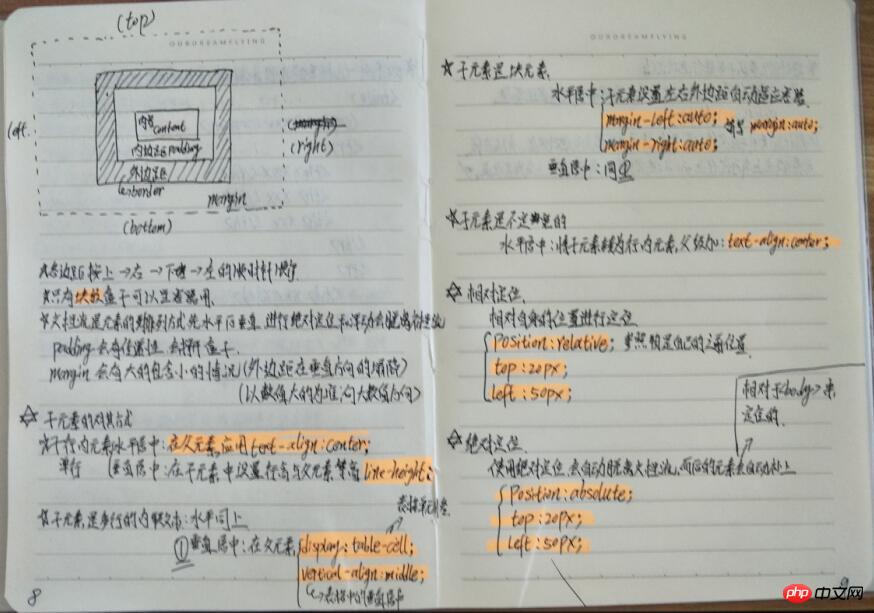 (top)
left.
(right)
内容content
内边距padding
外边距
border
margin
(bottom)
各边距按上→右→下→左的顺时针顺序
只有块级盒子可以
文档流是元素的排列方式先水平后垂直，进行绝对定位和浮动会脱离文档流
padding会有位置性 会撑开盒子
margin会有大的包含小的情况(外边距在垂直方向的塌陷)
(以数值大的为准向大数值方向)
☆ 子元素的对其方式
子行内元素水平居中：在父元素,应用text-align:center;
单行 垂直居中：在子元素中设置行高与父元素等高 line-height;
子元素是多行的内联文本：水平同上
表格单元格
①垂直居中：在父元素,
display:table-cell;
vertical-align:middle;
→表格中的垂直居中
8
OURDREAMFLYING
☆子元素是块元素.
水平居中：子元素设置左右外边距自动适应
margin-left:auto;
margin-right:auto;
margin:auto;
垂直居中：同①
☆子元素是不定的
水平居中：将子元素转为行内元素,父级加：text-align:center;
☆ 相对定位.
相对自身的位置进行定位
Position:relative; 参照物是自己的之前位置
top:20px;
left:50px;
相对于<body>来
定位的.
☆绝对定位.
使用绝对定位.会自动脱离文档流,而后的元素会自动补上
Position:absolute;
top:20px;
left:50px;
9
php 中文网